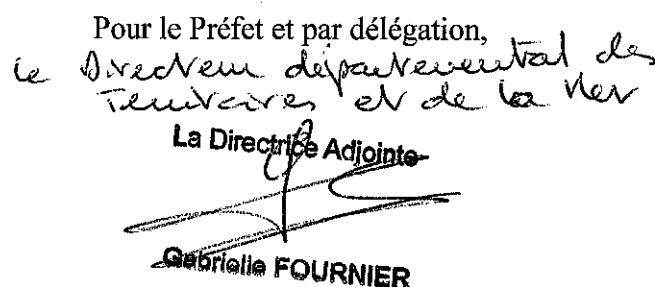 Pour le Préfet et par délégation,
le Directeur départemental des
Territoires et de la Mer
La Directrice Adjointe
Gabrielle FOURNIER